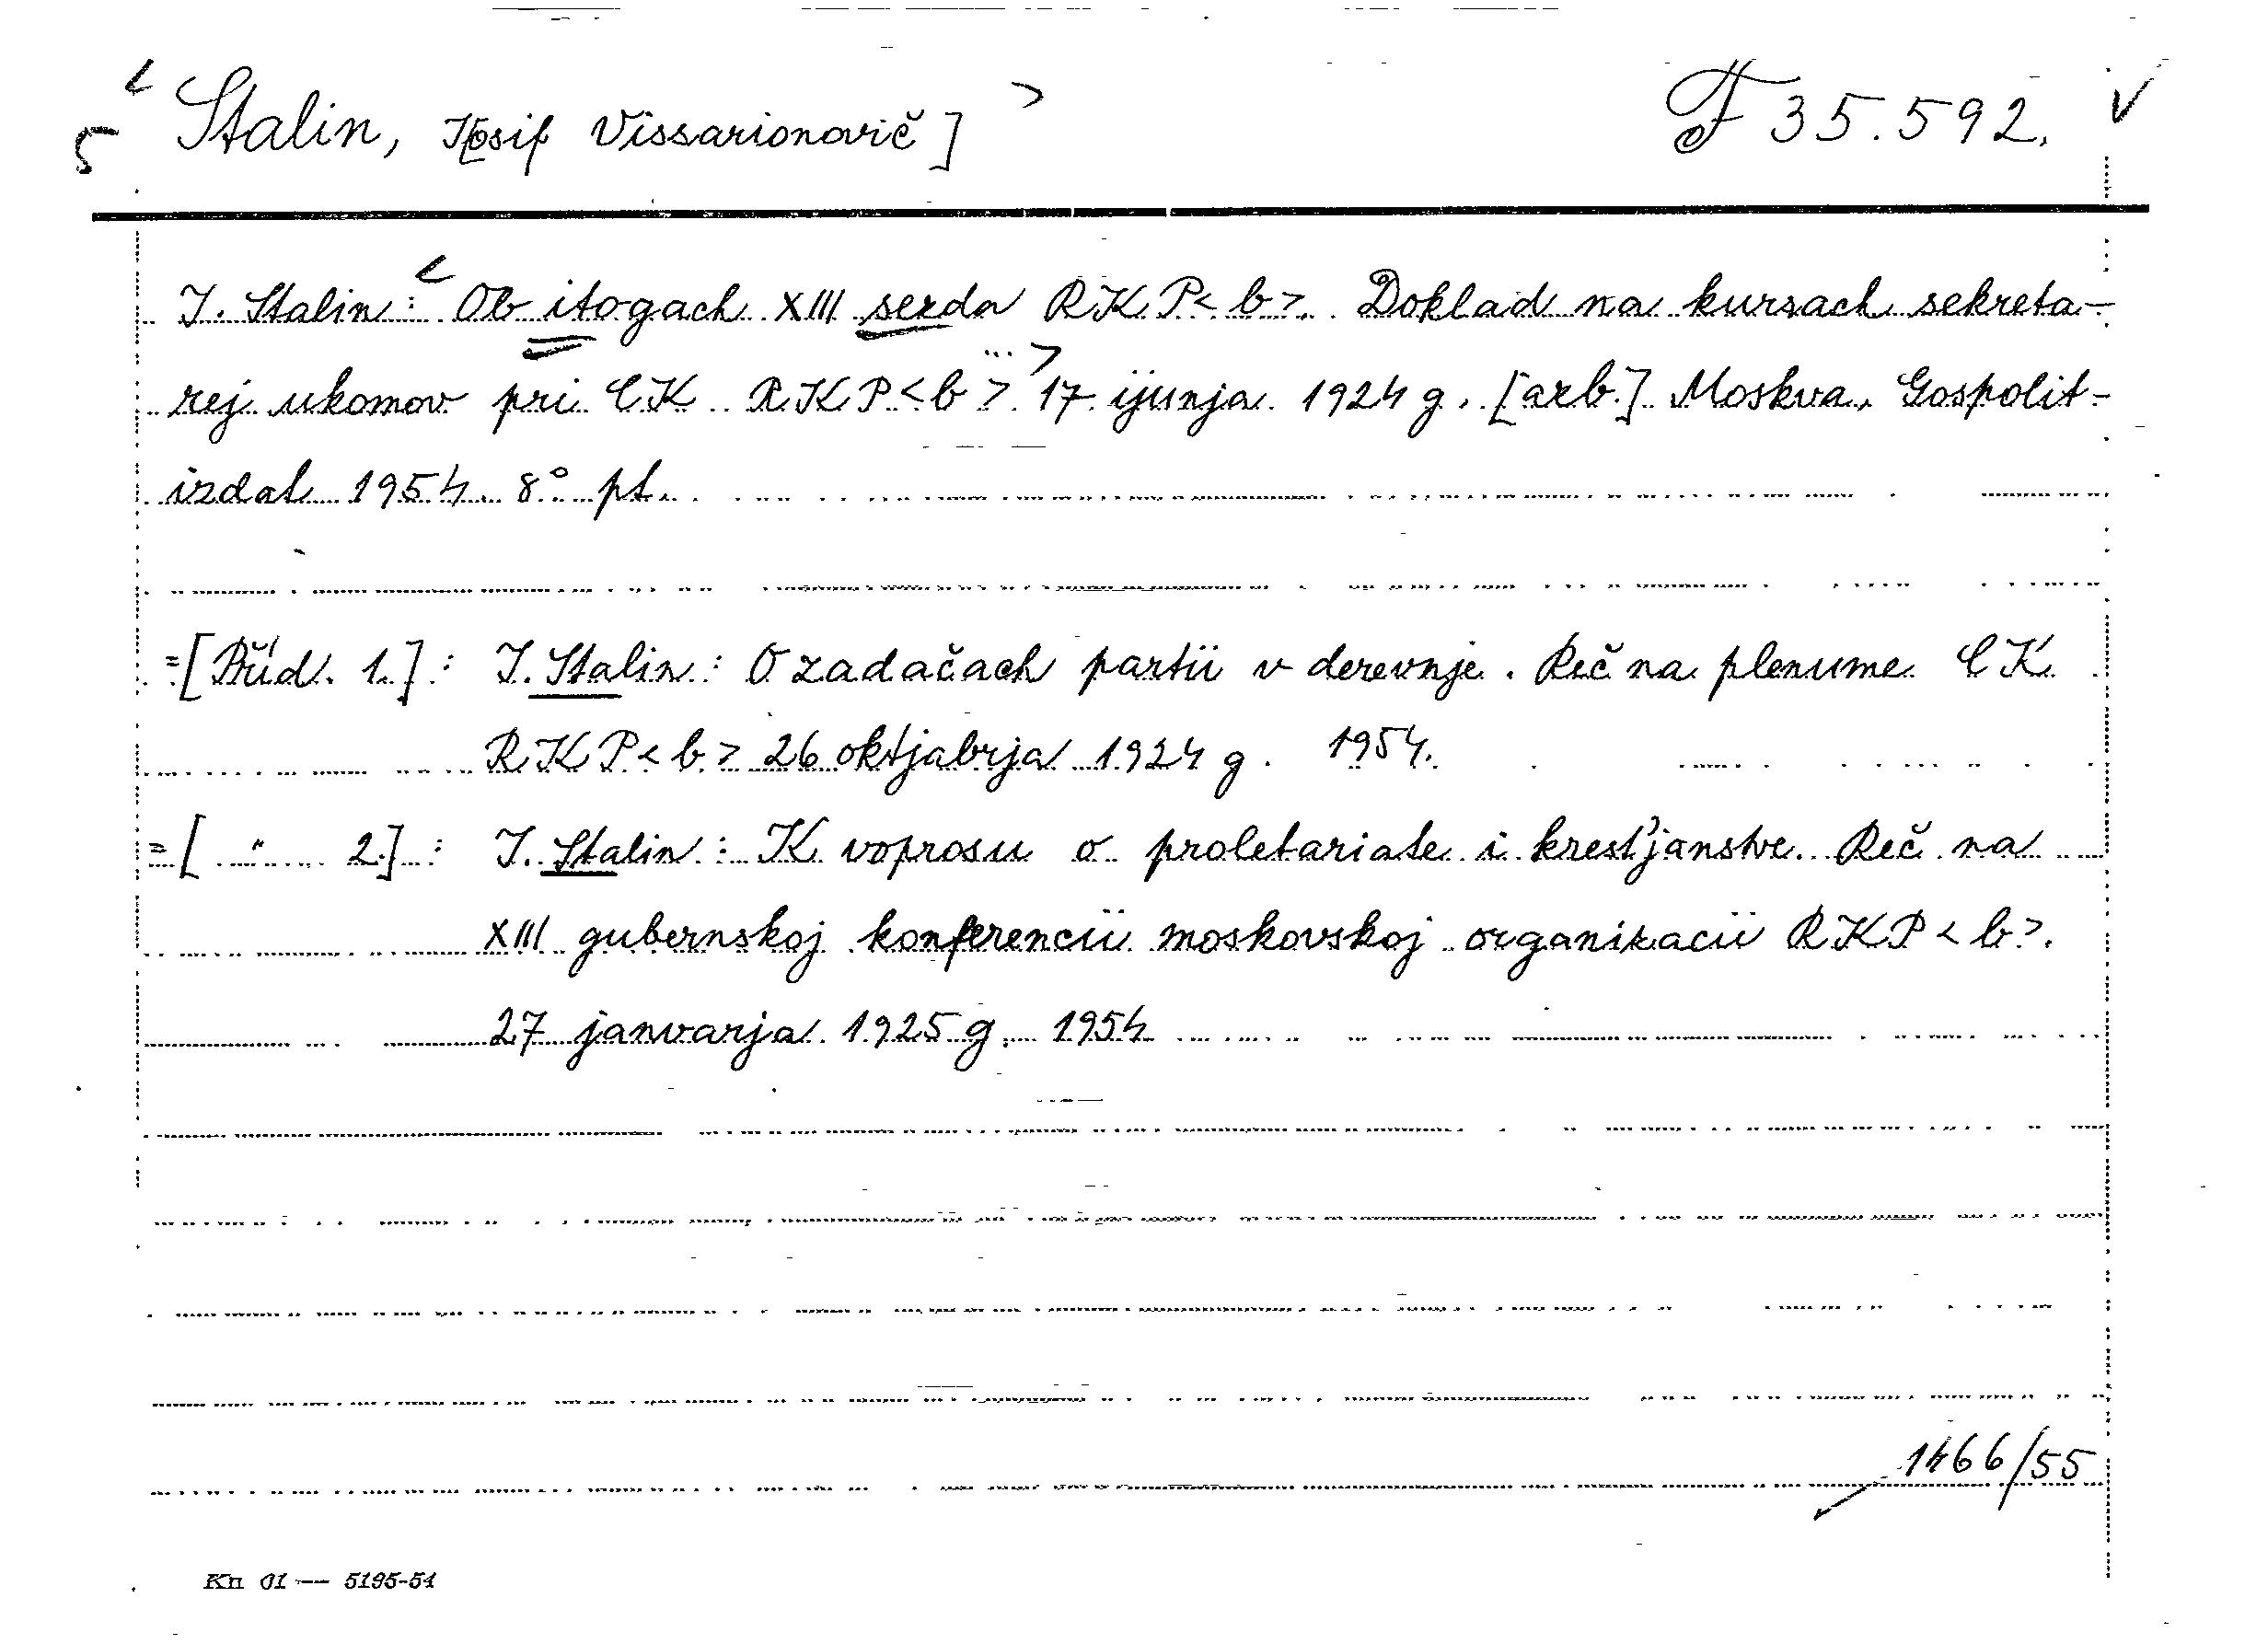 Stalin, I[osif Vissarionovič] F 35.592.
I. Stalin: Ob itogach XIII sezda RKP<b>. Doklad na kursach sekreta-
rej ukomov pri CK RKP<b> 17 ijunja 1924 g. [azb.] Moskva, Gospolit-
izdat 1954. 8° pt.
=[Příd. 1.]: I. Stalin: O zadačach partii v derevnje. Reč na plenume CK
RKP<b> 26 oktjabrja 1924 g. 1954.
=[ " 2.]: I. Stalin: K voprosu o proletariate i krest'janstve. Reč na
XIII gubernskoj konferencii moskovskoj organizacii RKP<b>.
27 janvarja 1925 g. 1954
1466/55
Kn 01 — 5195-54